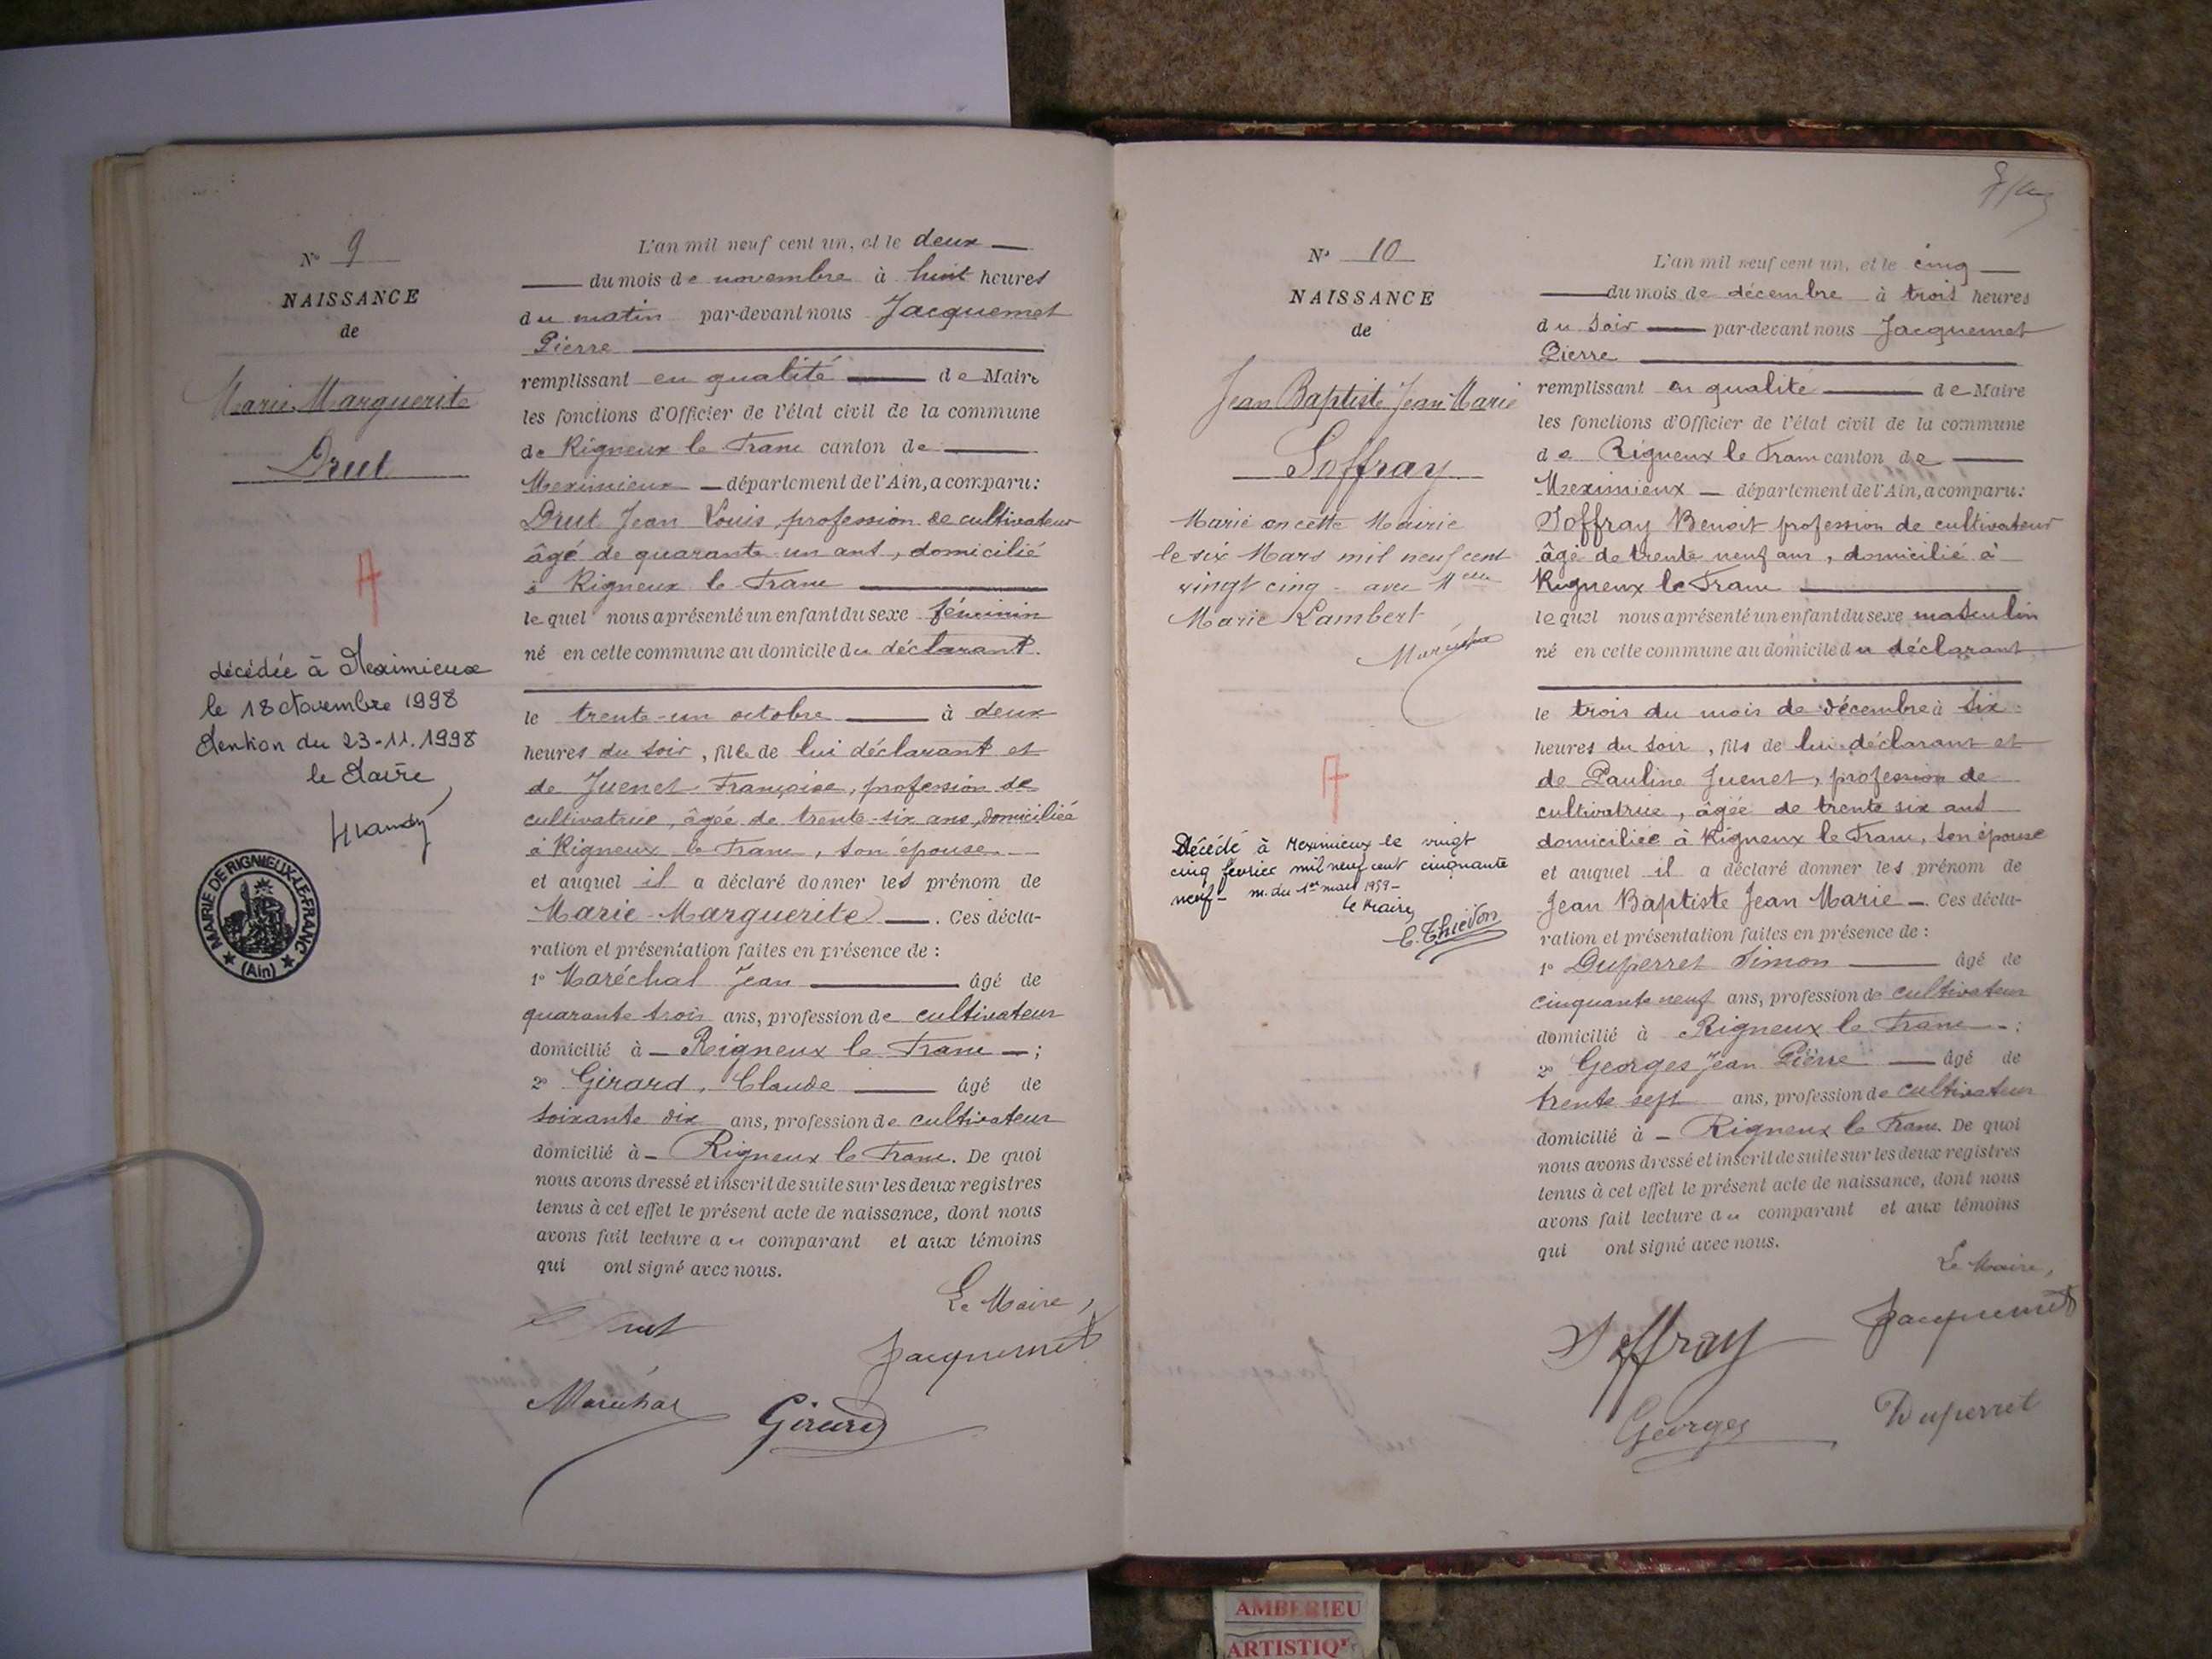 N° 9
NAISSANCE
de
Marie Marguerite
Drut
décédée à Meximieux
le 18 Novembre 1998
Mention du 23-11.1998
le Maire
MAIRIE DE RIGNIEUX-LE-FRANC
★ (Ain) ★
L'an mil neuf cent un, et le deux
du mois de novembre à huit heures
du matin par-devant nous Jacquemet
Pierre
remplissant en qualité de Maire
les fonctions d'Officier de l'état civil de la commune
de Rigneux le Franc canton de
Meximieux département de l'Ain, a comparu:
Drut Jean Louis, profession de cultivateur
âgé de quarante-un ans, domicilié
à Rigneux le Franc
lequel nous a présenté un enfant du sexe féminin
né en cette commune au domicile du déclarant.
le trente-un octobre à deux
heures du soir, fille de lui déclarant et
de Juenet Françoise, profession de
cultivatrice, âgée de trente-six ans, domiciliée
à Rigneux le Franc, son épouse
et auquel il a déclaré donner les prénom de
Marie-Marguerite. Ces décla-
ration et présentation faites en présence de :
1° Maréchal Jean âgé de
quarante trois ans, profession de cultivateur
domicilié à Rigneux le Franc ;
2° Girard, Claude âgé de
soixante dix ans, profession de cultivateur
domicilié à Rigneux le Franc. De quoi
nous avons dressé et inscrit de suite sur les deux registres
tenus à cet effet le présent acte de naissance, dont nous
avons fait lecture au comparant et aux témoins
qui ont signé avec nous.
Le Maire,
Drut
Jacquemet
Maréchal
Girard
N° 10
NAISSANCE
de
Jean Baptiste Jean Marie
Soffray
Marié en cette Mairie
le six Mars mil neuf cent
vingt cinq avec Melle
Marie Lambert
Maréchal
Décédé à Meximieux le vingt
cinq février mil neuf cent cinquante
neuf - m. du 1er mars 1959 -
Le Maire,
C. Thievon
L'an mil neuf cent un, et le cinq
du mois de décembre à trois heures
du soir par-devant nous Jacquemet
Pierre
remplissant en qualité de Maire
les fonctions d'Officier de l'état civil de la commune
de Rigneux le Franc canton de
Meximieux département de l'Ain, a comparu:
Soffray Benoit profession de cultivateur
âgé de trente neuf ans, domicilié à
Rigneux le Franc
lequel nous a présenté un enfant du sexe masculin
né en cette commune au domicile du déclarant
le trois du mois de décembre à six
heures du soir, fils de lui déclarant et
de Pauline Juenet, profession de
cultivatrice, âgée de trente six ans
domiciliée à Rigneux le Franc, son épouse
et auquel il a déclaré donner les prénom de
Jean Baptiste Jean Marie. Ces décla-
ration et présentation faites en présence de :
1° Duperret Simon âgé de
cinquante neuf ans, profession de cultivateur
domicilié à Rigneux le Franc ;
2° Georges Jean Pierre âgé de
trente sept ans, profession de cultivateur
domicilié à Rigneux le Franc. De quoi
nous avons dressé et inscrit de suite sur les deux registres
tenus à cet effet le présent acte de naissance, dont nous
avons fait lecture au comparant et aux témoins
qui ont signé avec nous.
Le Maire,
Soffray
Jacquemet
Georges
Duperret
AMBERIEU
ARTISTIQ